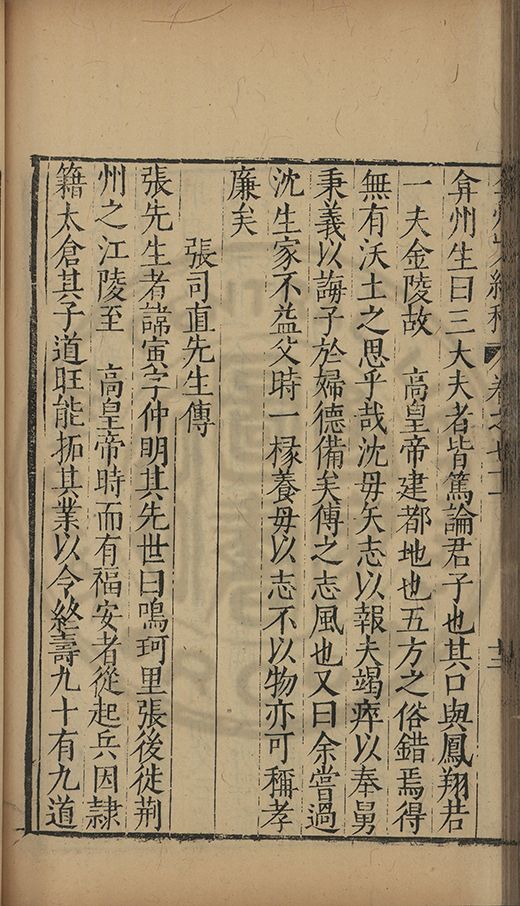 弇州生曰三大夫者皆篤論君子也其口與鳳翔若
一夫金陵故　高皇帝建都地也五方之俗錯焉得
無有沃土之思乎哉沈母矢志以報夫竭瘁以奉舅
秉義以誨子於婦德備矣傳之志風也又曰余嘗過
沈生家不益父時一椽養母以志不以物亦可稱孝
廉矣
張司直先生傳
張先生者諱寅字仲明其先世曰鳴珂里張後徙荆
州之江陵至　高皇帝時而有福安者從起兵因隷
籍太倉其子道旺能拓其業以令終壽九十有九道